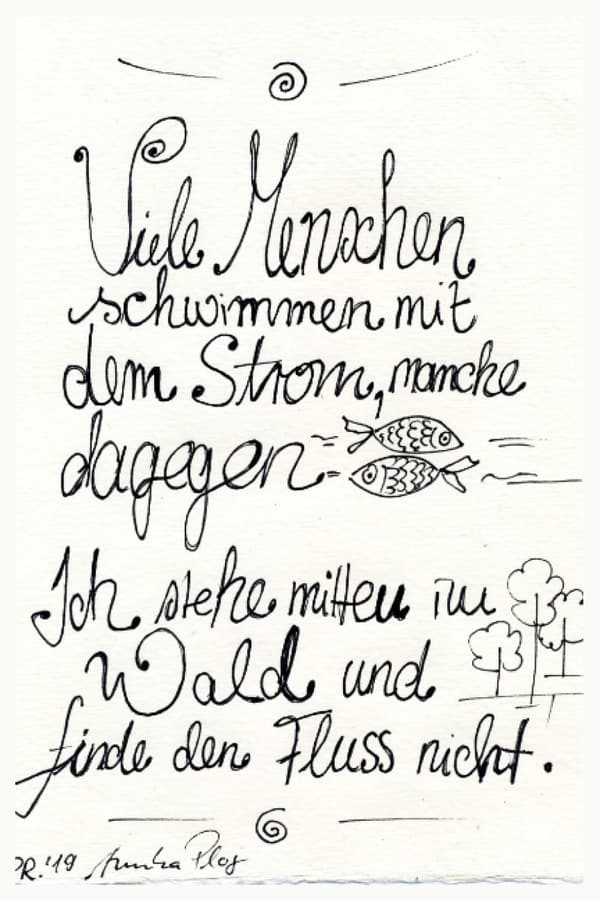 Viele Menschen
schwimmen mit
dem Strom, manche
dagegen
Ich stehe mitten im
Wald und
finde den Fluss nicht.
R.'19